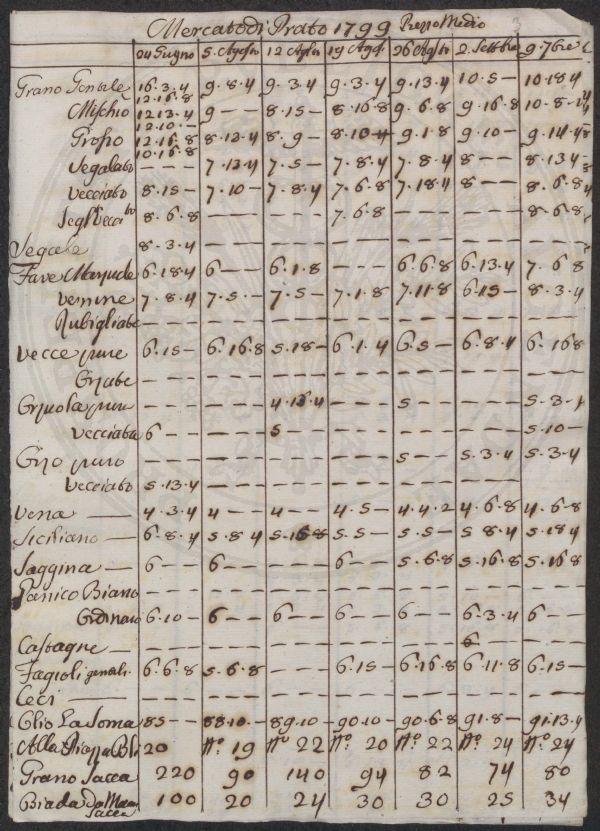 Mercato di Prato 1799 Prezzo Medio 3
24 Giugno 5. Agosto 12 Agto 19 Agto 26 Agto 2. Settbre 9. 7bre
Grano Gentile 16.3.4 9.8.4 9.3.4 9.3.4 9.13.4 10.5— 10.18.4
12.16.8
Mischio 12.13.4 9—— 8.15— 8.16.8 9.6.8 9.16.8 10.8.
12.10.—
Grosso 12.16.8 8.12.4 8.9— 8.10.4 9.1.8 9.10— 9.14.
10.16.8
Segalato ———— 7.13.4 7.5— 7.8.4 7.8.4 8—— 8.13.4
Vecciato 8.15— 7.10— 7.8.4 7.6.8 7.18.4 8—— 8.6.8
8.6.8 ———— ———— 7.6.8 ———— ———— 8.6.8
Segale 8.3.4 ———— ———— ———— ———— ———— ————
Fave 6.18.4 6—— 6.1.8 ———— 6.6.8 6.13.4 7.6.8
7.8.4 7.5— 7.5— 7.1.8 7.11.8 6.15— 8.3.4
Rubigliate ———— ———— ———— ———— ———— ———— ————
Vecce pure 6.15— 6.16.8 5.18— 6.1.4 6.5— 6.8.4 6.16.8
———— ———— ———— ———— ———— ———— ————
———— ———— 4.15.4 ———— 5—— ———— 5.3.4
Vecciata 6—— ———— 5—— ———— ———— ———— 5.10—
puro ———— ———— ———— ———— 5—— 5.3.4 5.3.4
Vecciato 5.13.4 ———— ———— ———— ———— ———— ————
Vena — 4.3.4 4—— 4—— 4.5— 4.4.2 4.6.8 4.6.8
Siciliano — 6.8.4 5.8.4 5.16.8 5.5— 5.5— 5.8.4 5.18.4
Saggina — 6—— 6—— ———— 6—— 5.6.8 5.16.8 5.16.8
Panico Biano ———— ———— ———— ———— ———— ———— ————
Ordinario 6.10— 6—— 6—— 6—— 6—— 6.3.4 6——
Castagne — ———— ———— ———— ———— ———— 6—— ————
Fagioli genali. 6.6.8 5.6.8 ———— 6.15— 6.16.8 6.11.8 6.15—
Ceci — ———— ———— ———— ———— ———— ———— ————
Olio La Soma 85—— 88.10.— 89.10— 90.10— 90.6.8 91.8— 91.13.4
Alla Piazza 20 No. 19 No 22 No. 20 No. 22 No. 24 No. 24
Grano Sacca 220 90 140 94 82 74 80
Biada 100 20 24 30 30 25 34
Sacca